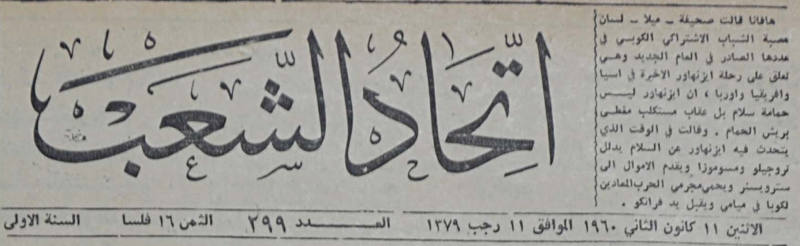 هافانا قالت صحيفة ـ ميلا ـ لسان
عصبة الشباب الاشتراكي الكوبي في
عددها الصادر في العام الجديد وهي
تعلق على رحلة ايزنهاور الاخيرة في اسيا
وافريقيا واوربا ، ان ايزنهاور ليس
حمامة سلام بل عقاب مستكلب مغطى
بريش الحمام . وقالت في الوقت الذي
يتحدث فيه ايزنهاور عن السلام يدلل
تروجيلو وسوموزا ويقدم الاموال الى
سترويسنر ويحمي مجرمي الحرب المعادين
لكوبا في ميامي ويقبل يد فرانكو .
اتِّحادُ الشَّعب
الاثنين ١١ كانون الثاني ١٩٦٠ الموافق ١١ رجب ١٣٧٩ العـــدد ٢٩٩ الثمن ١٦ فلسا السنة الاولى